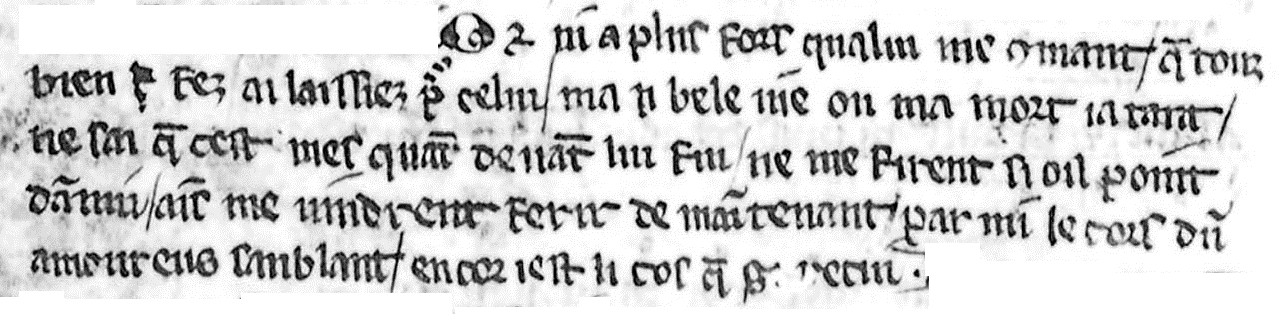 Or nı̃ a plus fors qualui me ꝯmant / q̃ touz
bien ⁊ fez ai laissiez p̃ celui / ma ri bele uie ou ma mort iatant /
ne sai q̃ cest mes quãt deuãt lui fui / ne me firent si oil point
dãnui / aı̃c me uindrent ferir de maı̃tenant / par mi le cors dũ
amoureus sanblant / encor iest li cos q̃ g̃ recui .